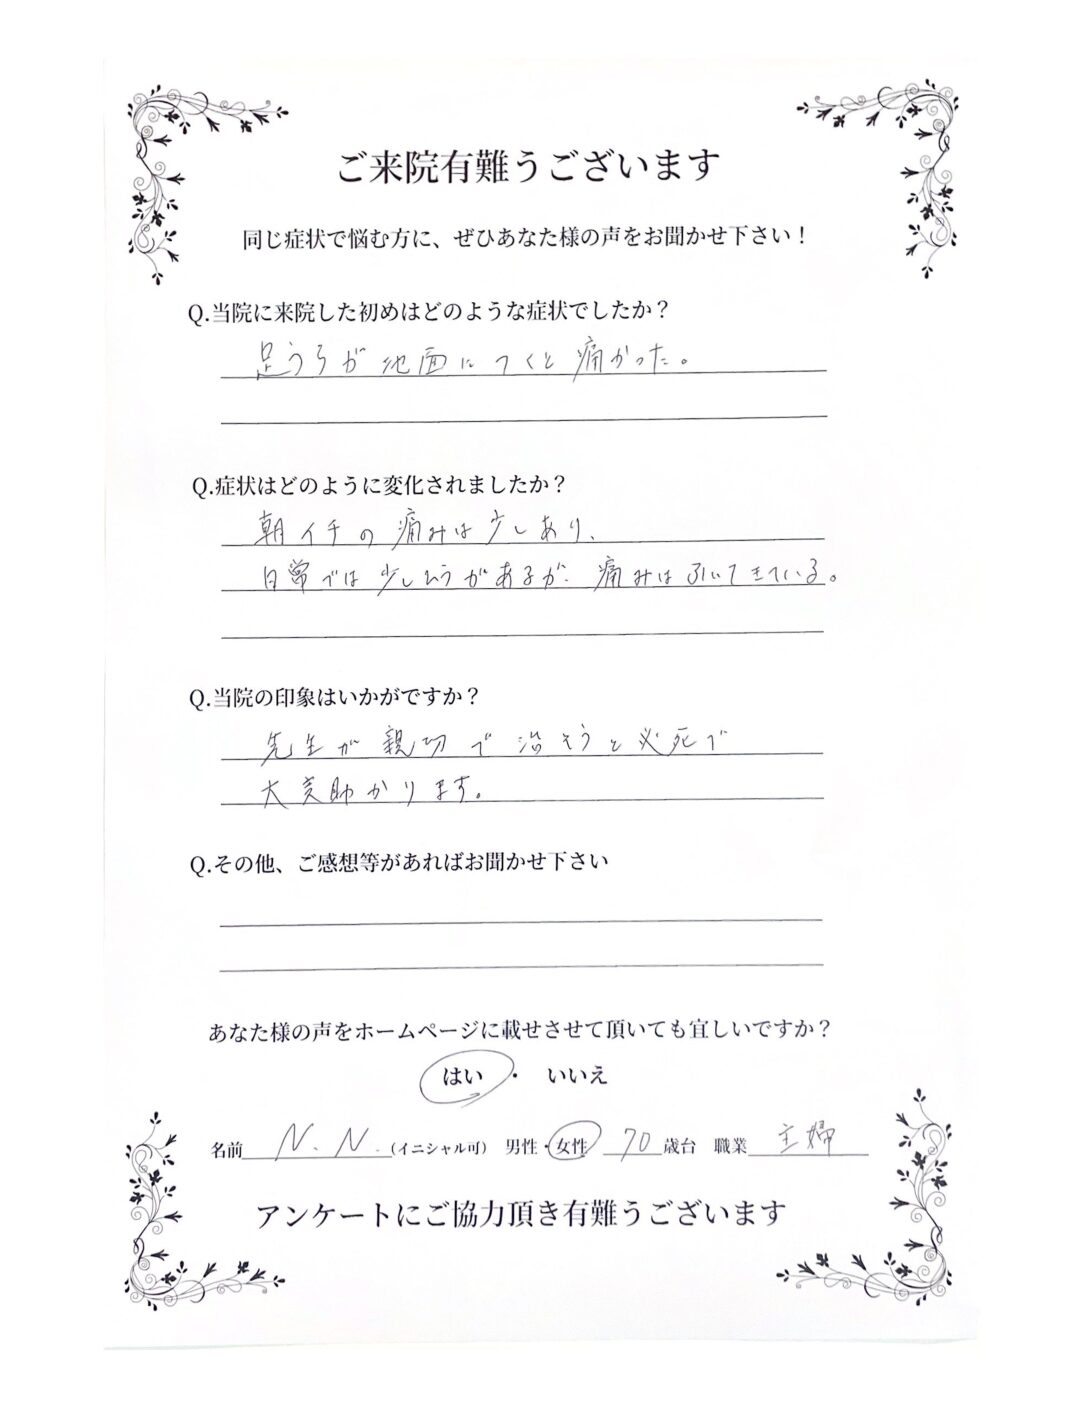 ご来院有難うございます
同じ症状で悩む方に、ぜひあなた様の声をお聞かせ下さい！
Q.当院に来院した初めはどのような症状でしたか？
足うらが地面につくと痛かった。
Q.症状はどのように変化されましたか？
朝イチの痛みは少しあり、
日常では少し があるが、痛みは引いてきている。
Q.当院の印象はいかがですか？
先生が親切で治そうと必死で
大変助かります。
Q.その他、ご感想等があればお聞かせ下さい
あなた様の声をホームページに載せさせて頂いても宜しいですか？
はい・ いいえ
名前 N.N.（イニシャル可） 男性・女性 70歳台 職業 主婦
アンケートにご協力頂き有難うございます